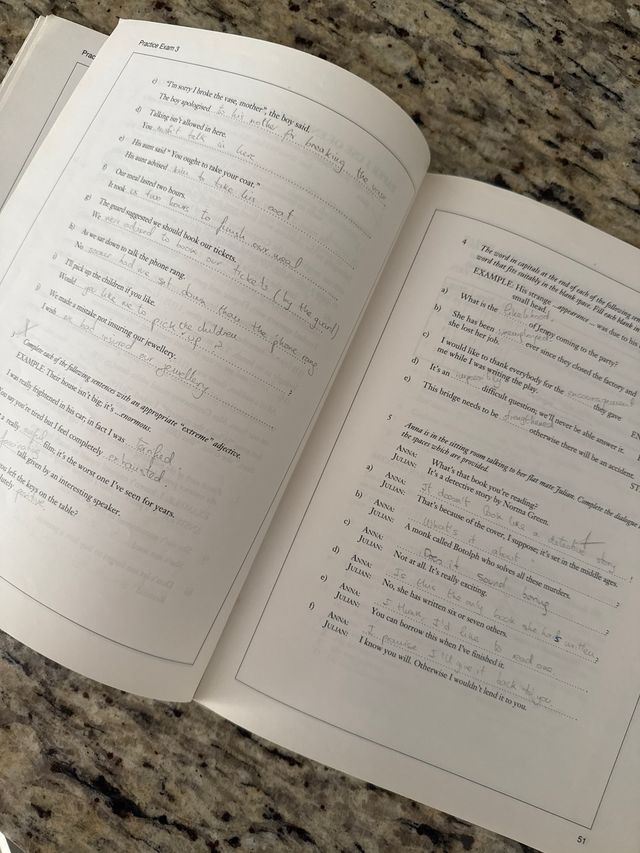 Practice Exam 3
c) "I'm sorry I broke the vase, mother" the boy said.
The boy apologised to his mother for breaking the vase
d) Talking isn't allowed in here.
You mustn't talk in here
e) His aunt said "You ought to take your coat."
His aunt advised him to take his coat
f) Our meal lasted two hours.
It took us two hours to finish our meal
g) The guard suggested we should book our tickets.
We were advised to book our tickets (by the guard)
h) As we sat down to talk the phone rang.
No sooner had we sat down than the phone rang
i) I'll pick up the children if you like.
Would you like me to pick the children up ?
j) We made a mistake not insuring our jewellery.
I wish we had insured our jewellery
Complete each of the following sentences with an appropriate "extreme" adjective.
EXAMPLE: Their house isn't big, it's ...enormous.
I was really frightened in his car, in fact I was
You say you're tired but I feel completely exhausted
a really awful film; it's the worst one I've seen for years.
talk given by an interesting speaker.
you left the keys on the table?
4 The word in capitals at the end of each of the following
word that fits suitably in the blank space. Fill each blank
EXAMPLE: His strange ...appearance... was due to his
small head.
a) What is the likelihood of Jenny coming to the party?
b) She has been unemployed ever since they closed the factory and
she lost her job.
c) I would like to thank everybody for the encouragement they gave
me while I was writing the play.
d) It's an difficult question; we'll never be able answer it.
e) This bridge needs to be strengthened otherwise there will be an accident.
5 Anna is in the sitting room talking to her flat mate Julian. Complete the dialogue
the spaces which are provided.
ANNA: What's that book you're reading?
JULIAN: It's a detective story by Norma Green.
a) ANNA: It doesn't look like a detective story
JULIAN: That's because of the cover, I suppose; it's set in the middle ages.
b) ANNA: What's it about ?
JULIAN: A monk called Botolph who solves all these murders.
c) ANNA: Does it sound boring ?
JULIAN: Not at all. It's really exciting.
d) ANNA: Is this the only book she has written ?
JULIAN: No, she has written six or seven others.
e) ANNA: I think I'd like to read one
JULIAN: You can borrow this when I've finished it.
f) ANNA: I promise I'll give it back to you
JULIAN: I know you will. Otherwise I wouldn't lend it to you.
51